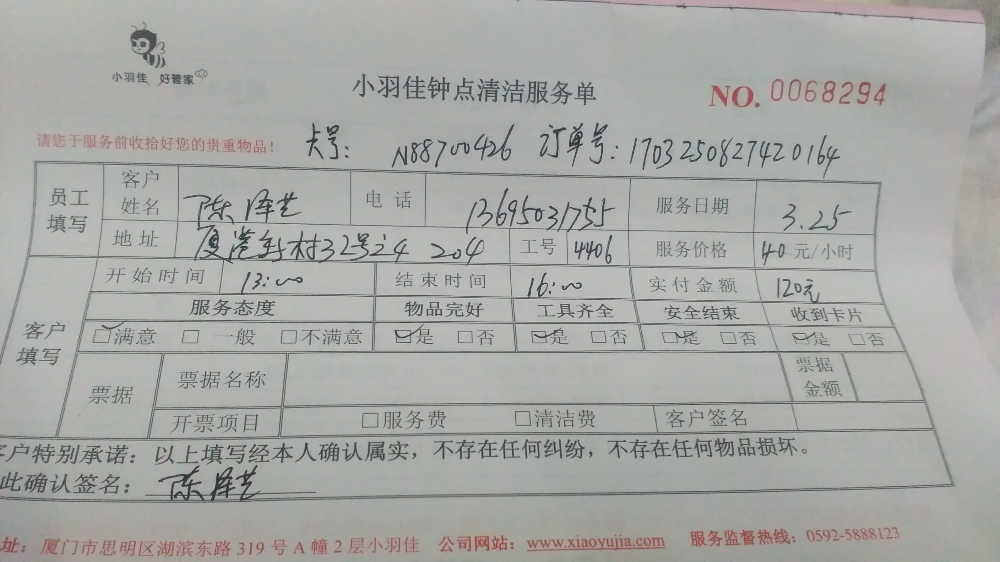 小羽佳 好管家
小羽佳钟点清洁服务单
NO. 0068294
请您于服务前收拾好您的贵重物品!
卡号: N88700426 订单号: 1703250827420164
员工填写
客户姓名 陈泽芝 电话 13695031755 服务日期 3.25
地址 厦港新村32号之4 204 工号 4406 服务价格 40 元/小时
客户填写
开始时间 13:00 结束时间 16:00 实付金额 120元
服务态度 物品完好 工具齐全 安全结束 收到卡片
☑满意 □一般 □不满意 ☑是 □否 ☑是 □否 ☑是 □否 ☑是 □否
票据 票据名称 票据金额
开票项目 □服务费 □清洁费 客户签名
客户特别承诺:以上填写经本人确认属实,不存在任何纠纷,不存在任何物品损坏。
此确认签名: 陈泽芝
址:厦门市思明区湖滨东路 319 号 A 幢 2 层小羽佳 公司网站:www.xiaoyujia.com 服务监督热线:0592-5888123